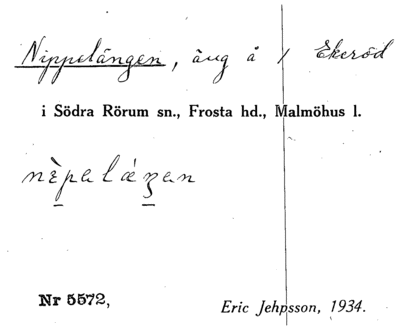 Nippelängen, äng å / Ekeröd
i Södra Rörum sn., Frosta hd., Malmöhus l.
Nr 5572,
Eric Jehpsson, 1934.